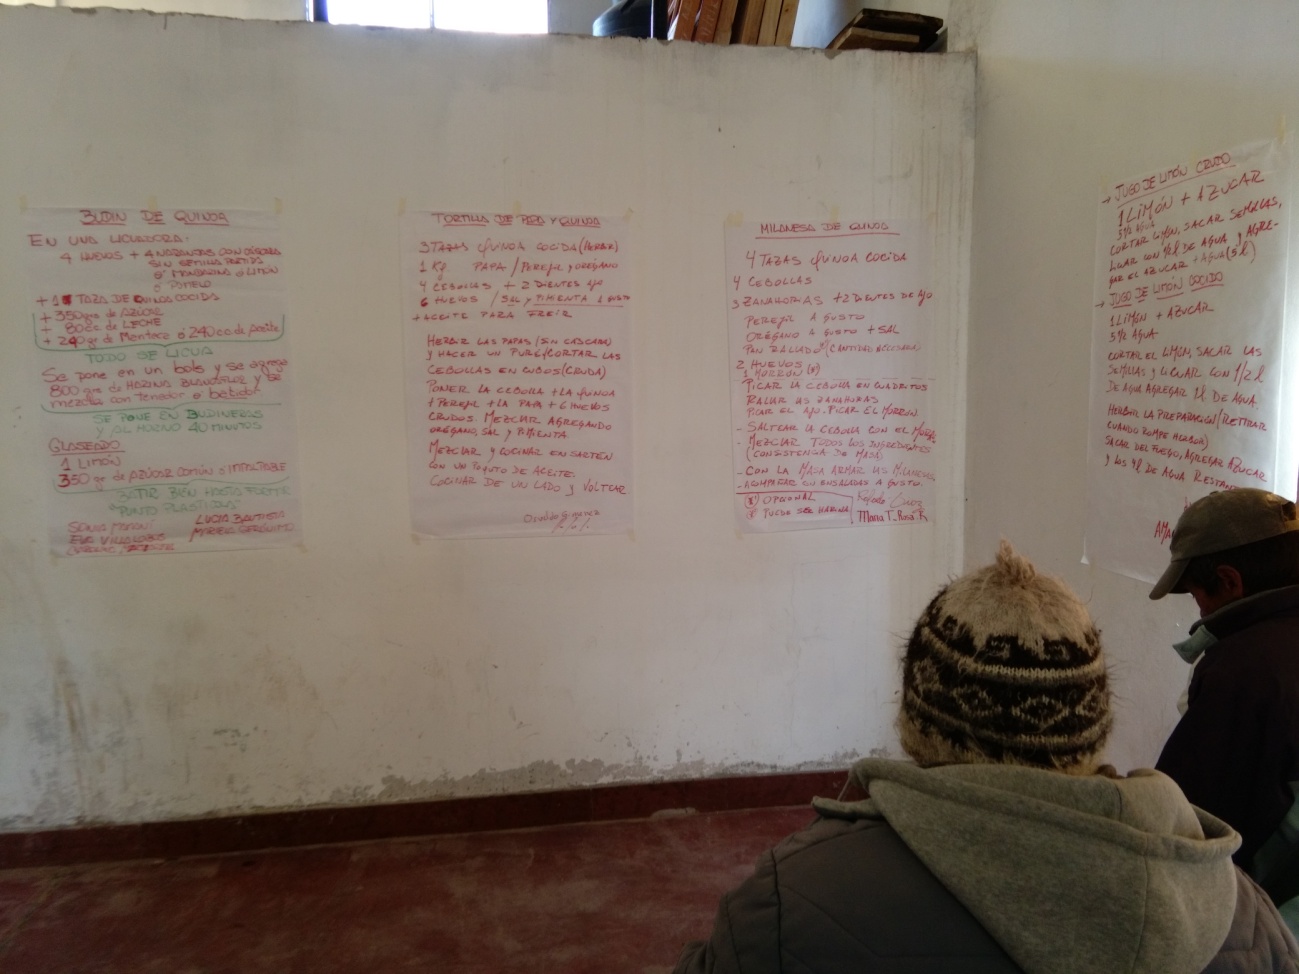 BUDIN DE QUINOA
EN UNA LICUADORA:
4 HUEVOS + 4 NARANJAS CON CÁSCARA
SIN SEMILLA PARTIDA
ó MANDARINA ó LIMÓN
ó POMELO
+ 1 TAZA DE QUINOA COCIDA
+ 350 grs de AZÚCAR
+ 80cc de LECHE
+ 240 gr de Manteca ó 240 cc. de Aceite
TODO SE LICUA
Se pone en un bols y se agrega
800 grs de HARINA BLANCAFLOR y se
mezcla con tenedor o batidor
SE PONE EN BUDINERAS
Y AL HORNO 40 MINUTOS
GLASEADO
1 LIMÓN
350 gr de AZÚCAR COMÚN ó IMPALPABLE
BATIR BIEN HASTA FORMAR
"PUNTO PLASTICOSO"
SONIA MAMANÍ LUCIA BAUTISTA
EVE VILLALOBOS
TORTILLA DE PAPA Y QUINOA
3 TAZAS QUINOA COCIDA (HERBIR)
1 Kg PAPA / PEREJIL y ORÉGANO
4 CEBOLLAS + 2 DIENTES AJO
6 HUEVOS / SAL y PIMIENTA A GUSTO
+ ACEITE PARA FREIR
HERBIR LAS PAPAS (SIN CASCARA)
y HACER UN PURÉ/CORTAR LAS
CEBOLLAS EN CUBOS (CRUDA)
PONER LA CEBOLLA + LA QUINOA
+ PEREJIL + LA PAPA + 6 HUEVOS
CRUDOS. MEZCLAR AGREGANDO
ORÉGANO, SAL y PIMIENTA.
MEZCLAR y COCINAR EN SARTÉN
CON UN POQUITO DE ACEITE.
COCINAR DE UN LADO y VOLTEAR
MILANESA DE QUINOA
4 TAZAS QUINOA COCIDA
4 CEBOLLAS
3 ZANAHORIAS + 2 DIENTES DE AJO
PEREJIL A GUSTO
ORÉGANO A GUSTO + SAL
PAN RALLADO (CANTIDAD NECESARIA)
2 HUEVOS
1 MORRÓN (*)
PICAR LA CEBOLLA EN CUADRITOS
RALAR LAS ZANAHORIAS
PICAR EL AJO. PICAR EL MORRÓN.
- SALTEAR LA CEBOLLA CON EL MORRÓN
- MEZCLAR TODOS LOS INGREDIENTES
(CONSISTENCIA DE MASA)
- CON LA MASA ARMAR LAS MILANESAS
- ACOMPAÑAR CON ENSALADAS A GUSTO.
(*) OPCIONAL
PUEDE SER HARINA
Maria T. Rosa R
→ JUGO DE LIMÓN CRUDO
1 LIMÓN + AZUCAR
5 1/2 AGUA
CORTAR LIMÓN, SACAR SEMILLAS,
LICUAR CON 1/2 l DE AGUA y AGRE-
GAR EL AZUCAR + AGUA (5 l)
→ JUGO DE LIMÓN COCIDO
1 LIMÓN + AZUCAR
5 1/2 AGUA
CORTAR EL LIMÓN, SACAR LAS
SEMILLAS y LICUAR CON 1/2 l
DE AGUA AGREGAR 1 l DE AGUA.
HERBIR LA PREPARACIÓN (RETIRAR
CUANDO ROMPE HERBOR)
SACAR DEL FUEGO, AGREGAR AZUCAR
y LOS 4 l DE AGUA